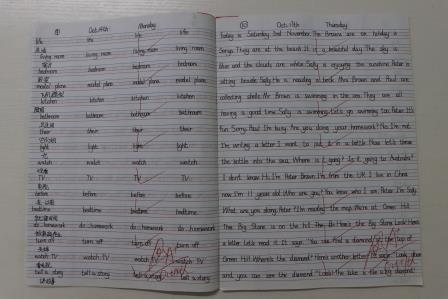 Oct. 14th Monday
life life life life
living room living room living room living room
bedroom bedroom bedroom bedroom
model plane model plane model plane model plane
kitchen kitchen kitchen kitchen
bathroom bathroom bathroom bathroom
their their their their
light light light light
watch watch watch watch
TV TV TV TV
before before before before
bedtime bedtime bedtime bedtime
do homework do homework do homework
turn off turn off turn off turn off
watch TV watch TV watch TV
tell a story tell a story tell a story
Oct. 17th Thursday
Today is Saturday 2nd November. The Browns are on holiday in
Sanya. They are at the beach. It is a beautiful day. The sky is
blue and the clouds are white. Sally is enjoying the sunshine. Peter is
sitting beside Sally. He is reading a book. Mrs Brown and Paul are
collecting shells. Mr Brown is swimming in the sea. They are all
having a good time. Sally is swimming. Let's go swimming too, Peter. It's
fun. Sorry, Paul. I'm busy. Are you doing your homework? No, I'm not.
I'm writing a letter. I want to put it in a bottle. Now let's throw
the bottle into the sea. Where is it going? Is it going to Australia?
I don't know. I'm Peter Brown. I'm from the UK. I live in China
now. I'm 11 years old. Who are you? Now who I am. Peter. I'm Sally.
What are you doing, Peter? I'm reading the map. We're at Green Hill.
The Big Stone is on the hill. The Here's the Big Stone. Look! Here's
a letter. Let's read it. It says, "You can find a diamond at the top of
Green Hill. Where's the diamond? Here's another letter. It says "Look
and you can see the diamond." Look! The lake is like a big diamond!